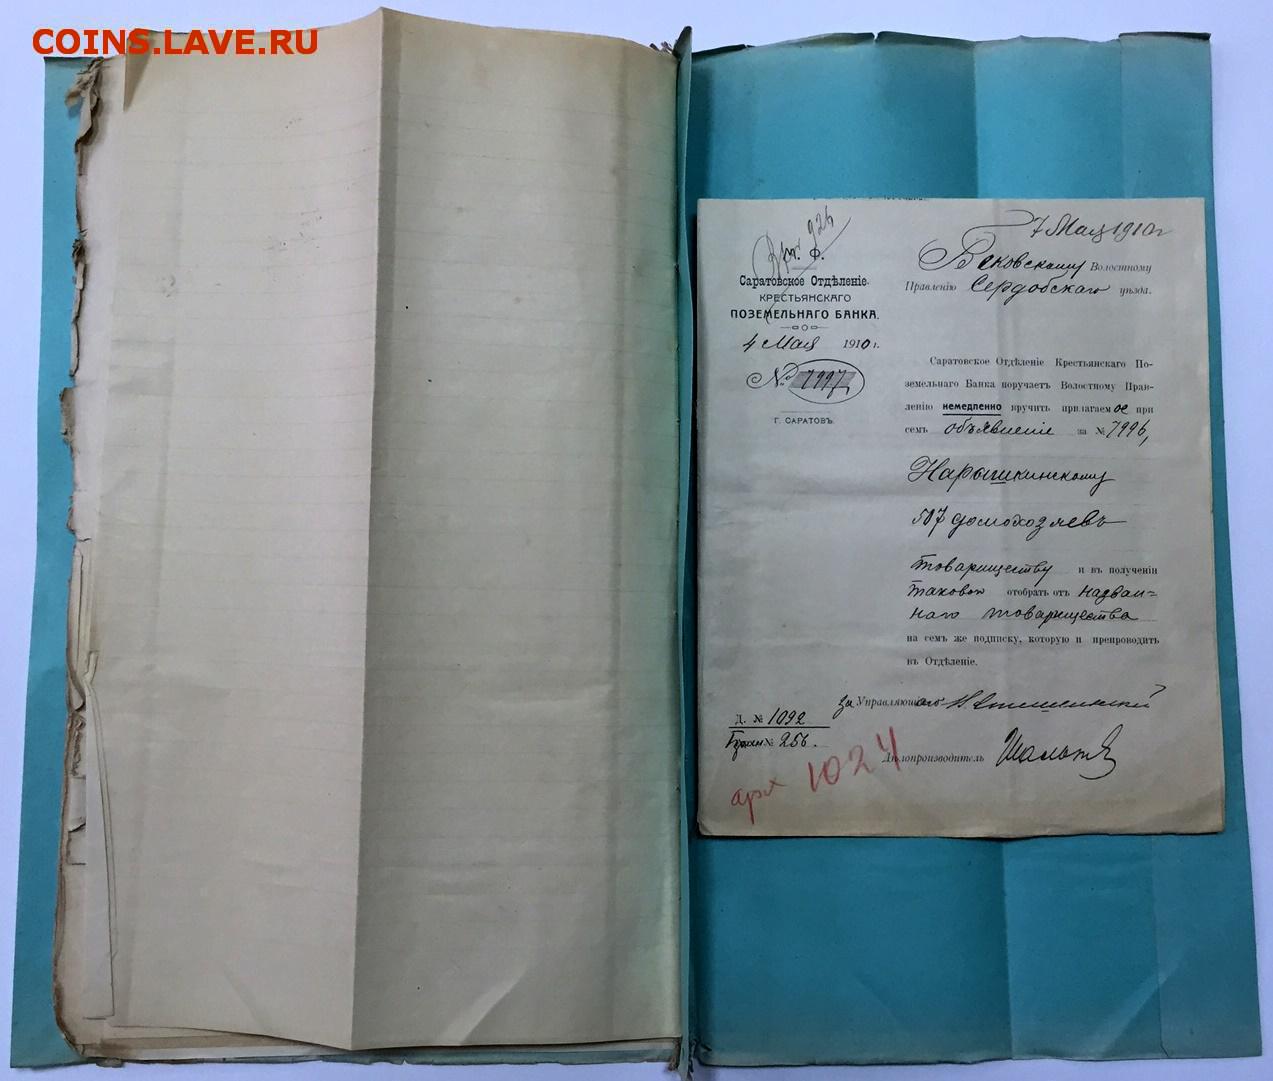 COINS.LAVE.RU
7 Мая 1910 г
926
М. Ф.
Саратовское Отдѣленіе
КРЕСТЬЯНСКАГО
ПОЗЕМЕЛЬНАГО БАНКА.
4 Мая 1910 г.
№ 7997
Г. САРАТОВЪ.
Бековскому Волостному
Правленію Сердобскаго уѣзда.
Саратовское Отдѣленіе Крестьянскаго По-
земельнаго Банка поручаетъ Волостному Прав-
ленію немедленно вручить прилагаемое при
семъ объявленіе за № 7996,
Нарышкинскому
507 домохозяевъ
товариществу и въ полученіи
таковое отобрать отъ назван-
наго товарищества
на семъ же подписку, которую и препроводить
въ Отдѣленіе.
за Управляющаго
Дѣлопроизводитель
Д. № 1092
№ 256.
арх 1024